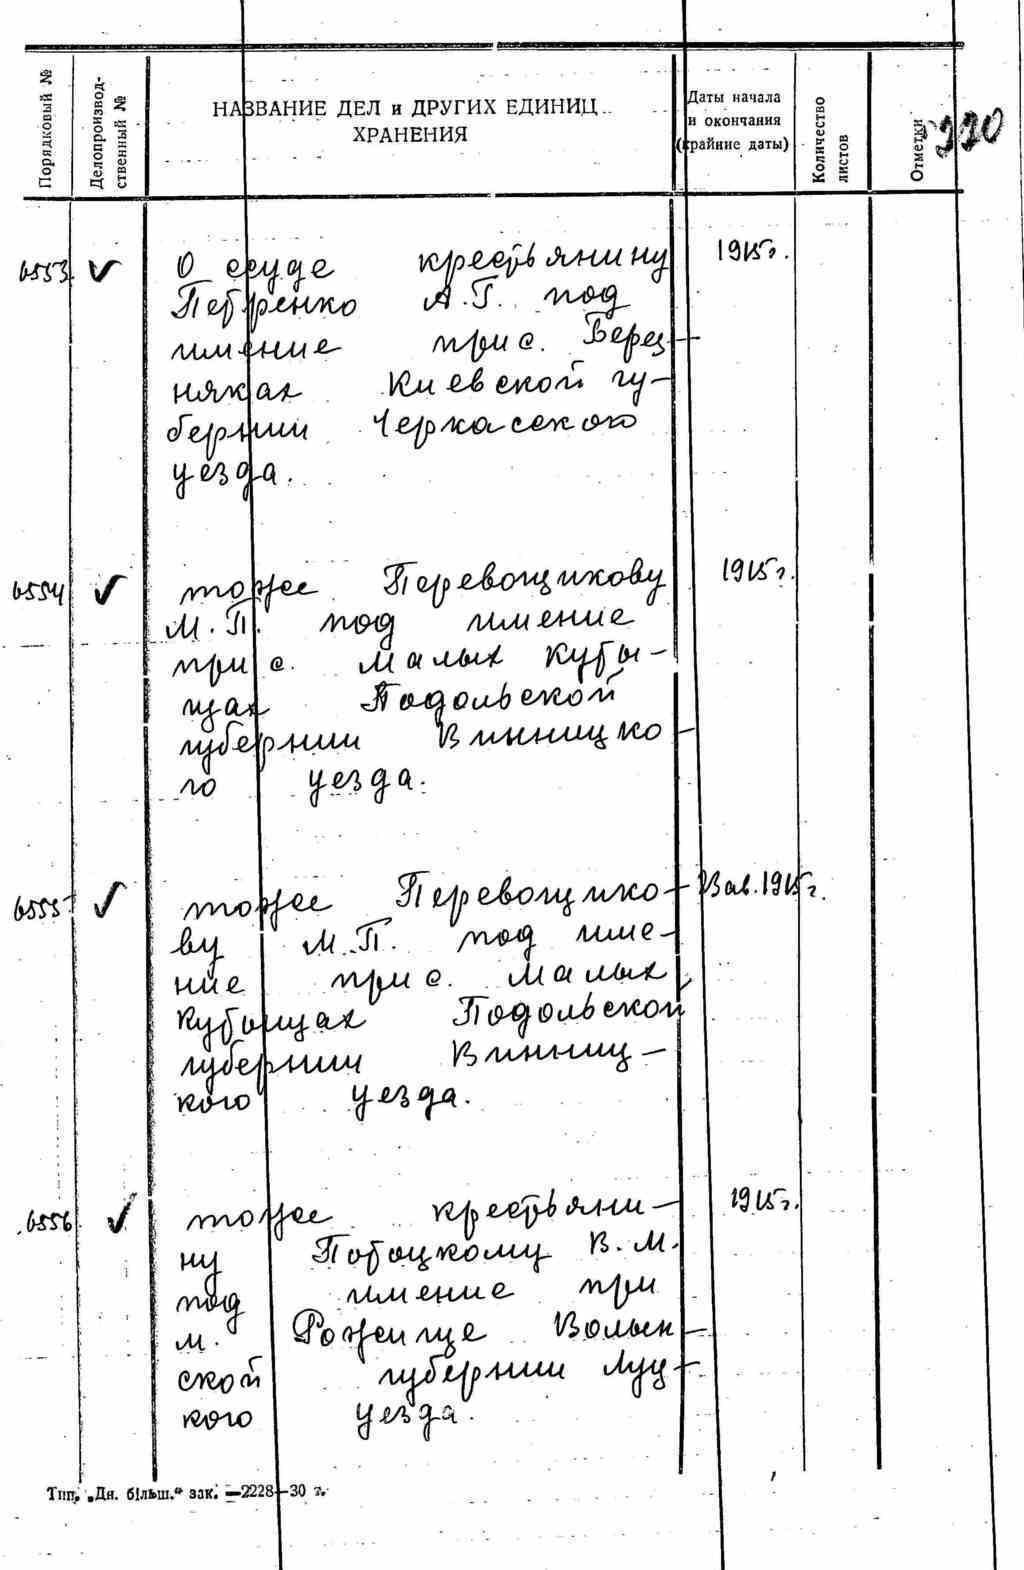 Порядковый №
Делопроизвод-
ственный №
НАЗВАНИЕ ДЕЛ и ДРУГИХ ЕДИНИЦ
ХРАНЕНИЯ
Даты начала
и окончания
(крайние даты)
Количество
листов
Отметки
6553 О ссуде крестьянину 1915г.
Петренко А.Г. под
имение при с. Берез-
няках Киевской гу-
бернии Черкасского
уезда.
6554 тоже Перевощикову 1915г.
М.П. под имение
при с. Малых Куты-
щах Подольской
губернии Винницко-
го уезда.
6555 тоже Перевощико-
ву М.П. под име-
ние при с. Малых
Кутыщах Подольской
губернии Винниц-
кого уезда.
6556 тоже крестьяни- 1915г.
ну Потоцкому В.М.
под имение при
м. Рожище Волын-
ской губернии Луц-
кого уезда.
Тип. „Дн. більш.“ зак. —2228—30 г.